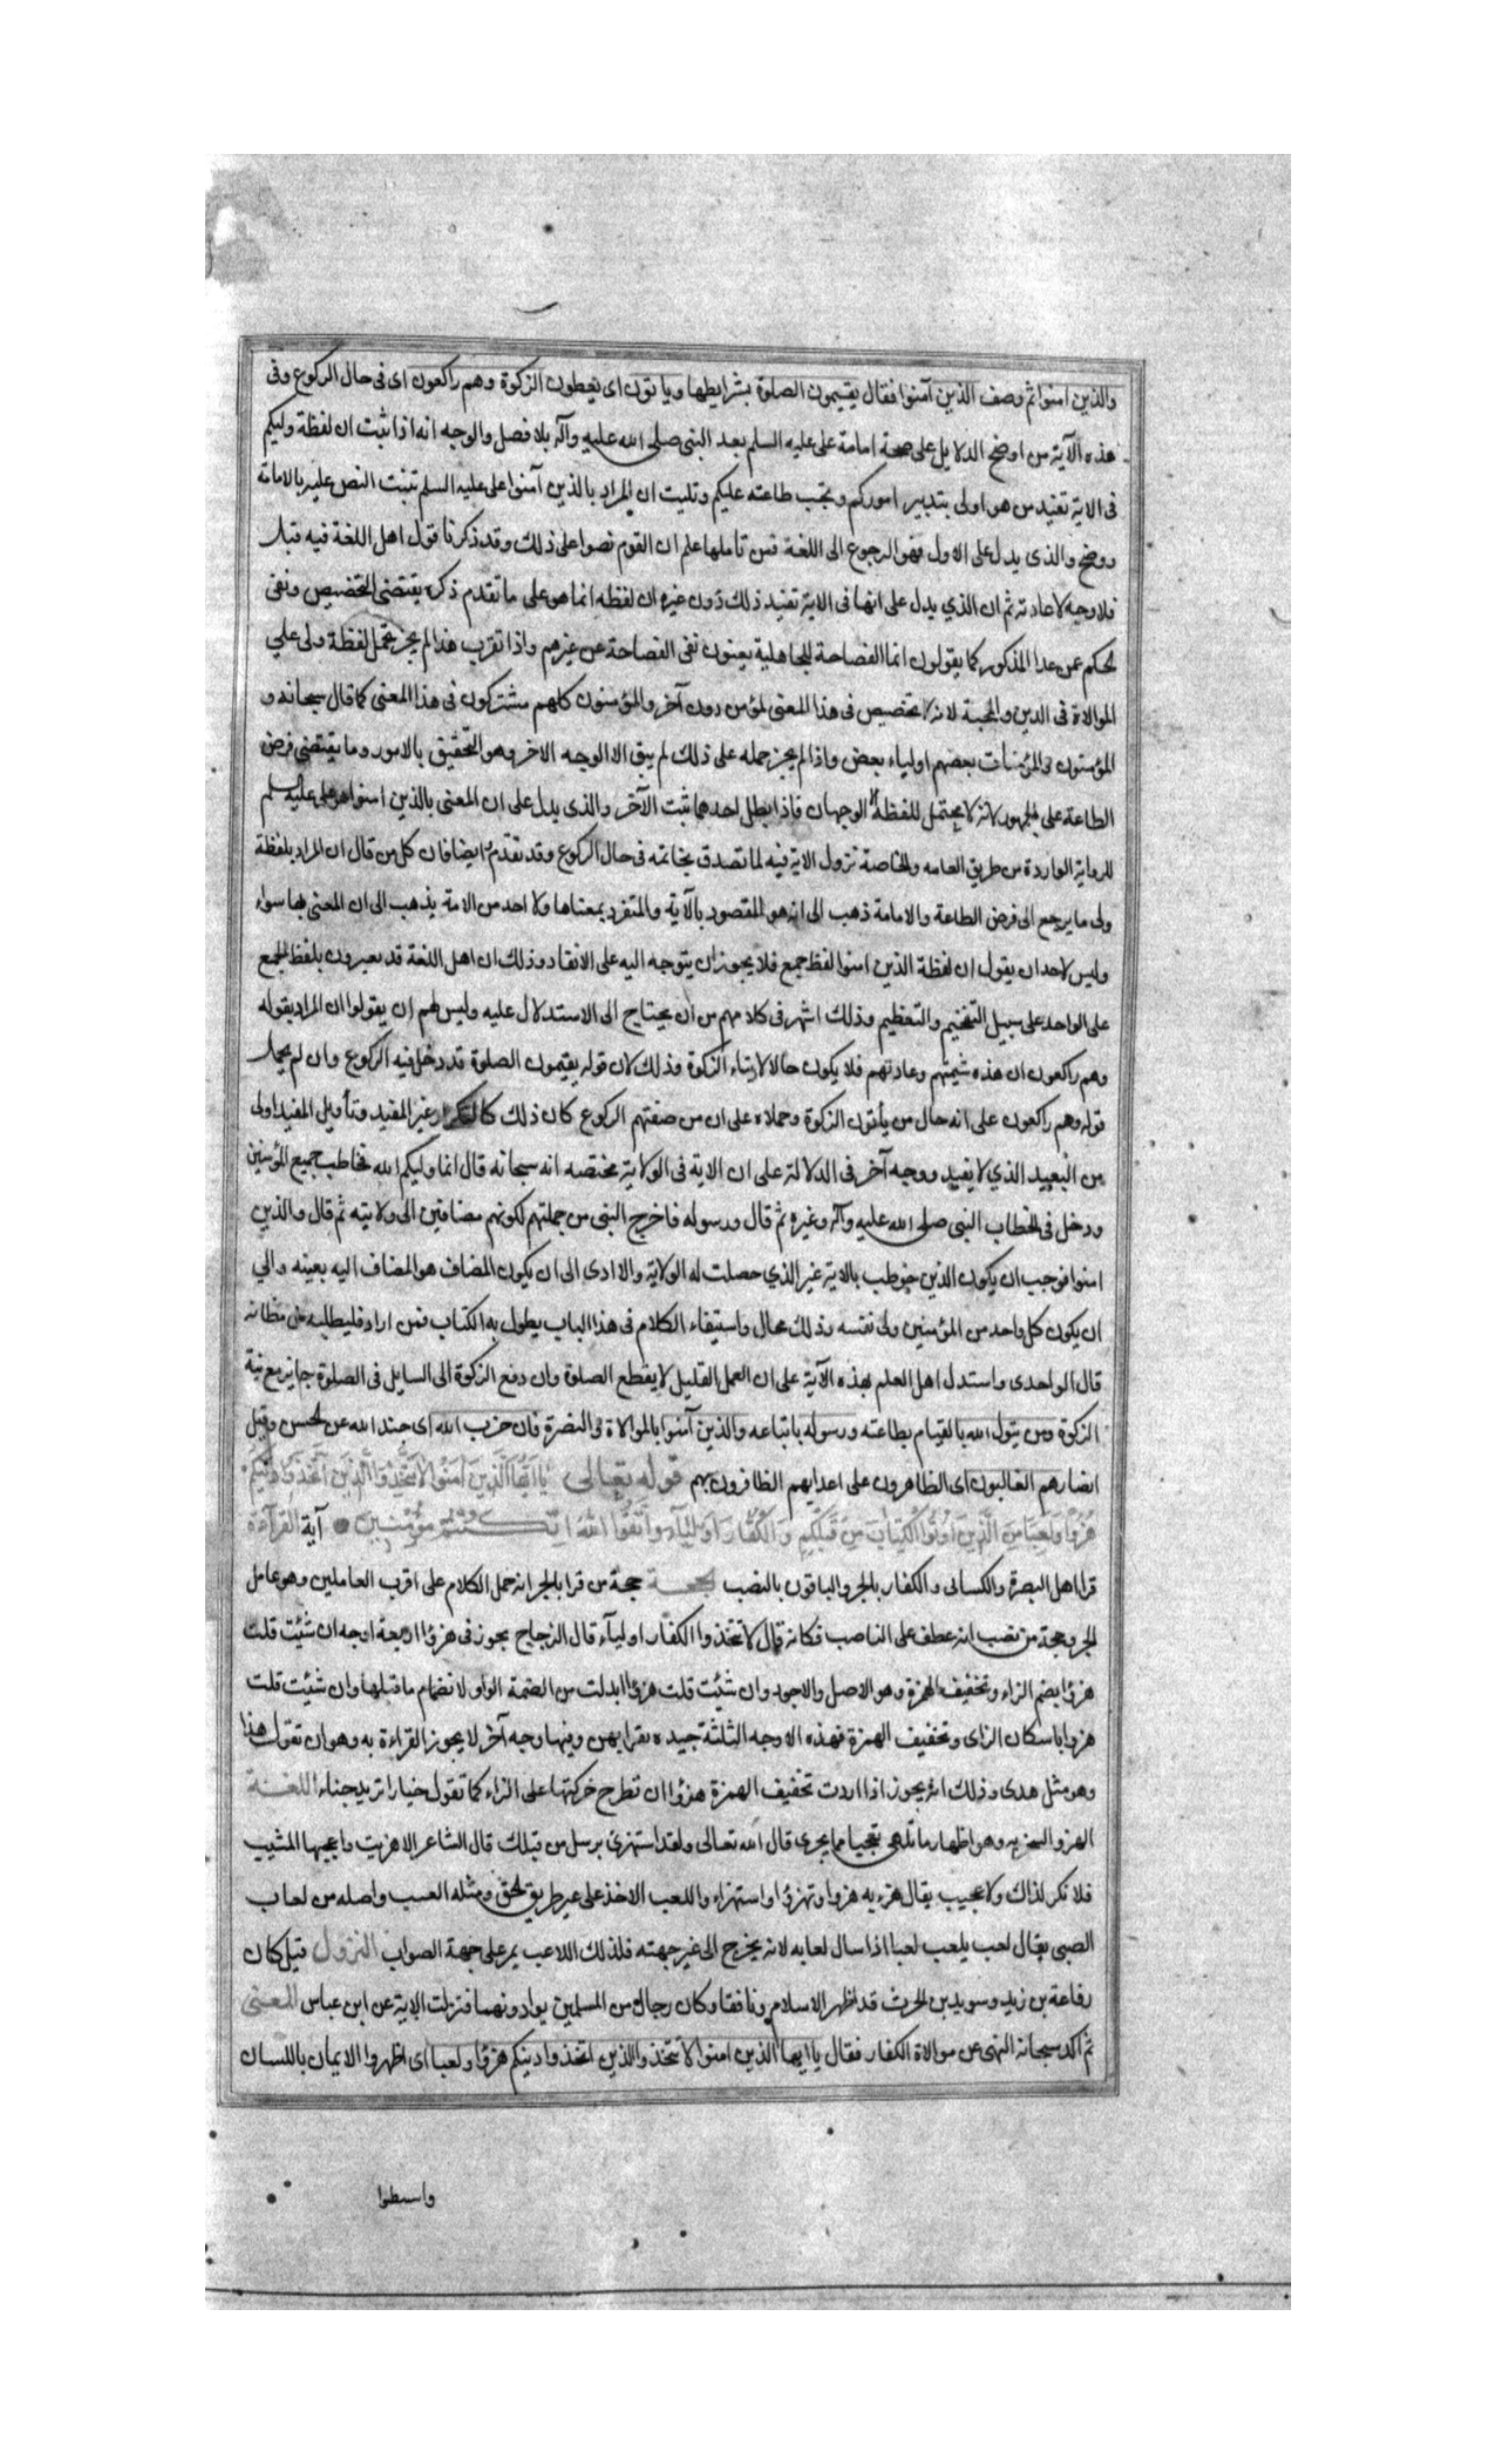 والذين امنوا ثم وصف الذين آمنوا فقال يقيمون الصلوة بشرايطها ويأتون اى يعطون الزكوة وهم راكعون اى فى حال الركوع وفى
هذه الآية من اوضح الدلايل على صحة امامة على عليه السلم بعد النبى صلى الله عليه وآله بلا فصل والوجه انه اذا ثبت ان لفظة وليكم
فى الاية تفيد من هو اولى بتدبير اموركم وتجب طاعته عليكم وثبت ان المراد بالذين آمنوا على عليه السلم ثبت النص عليه بالامامة
ووضح والذى يدل على الاول فهو الرجوع الى اللغة فمن تاملها علم ان القوم نصوا على ذلك وقد ذكرنا قول اهل اللغة فيه قبل
فلا وجه لاعادته ثم ان الذي يدل على انها فى الاية تفيد ذلك دون غيره ان لفظه انما هو على ما تقدم ذكره يقتضى التخصيص ونفى
الحكم عمن عدا المذكور كما يقولون انما الفصاحة للجاهلية يعنون نفى الفصاحة عن غيرهم واذا تقرب هذا لم يجز حمل لفظة ولى على
الموالاة فى الدين والمحبة لانه لا تخصيص فى هذا المعنى لمؤمن دون آخر والمؤمنون كلهم مشتركون فى هذا المعنى كما قال سبحانه و
المؤمنون والمؤمنات بعضهم اولياء بعض واذا لم يجز حمله على ذلك لم يبق الا الوجه الاخر وهو التحقيق بالامور وما يقتضى فرض
الطاعة على الجمهور لانه لا يحتمل للفظة الا الوجهان فاذا بطل احدهما ثبت الآخر والذى يدل على ان المعنى بالذين امنوا هو على عليه السلم
الرواية الواردة من طريق العامه والخاصة نزول الاية فيه لما تصدق بخاتمه فى حال الركوع وقد تقدم ايضا فان كل من قال ان المراد بلفظة
ولى ما يرجع الى فرض الطاعة والامامة ذهب الى انه هو المقصود بالآية والمتفرد بمعناها ولا احد من الامة يذهب الى ان المعنى بها سواه
وليس لاحد ان يقول ان لفظة الذين امنوا لفظ جمع فلا يجوز ان يتوجه اليه على الانفراد وذلك ان اهل اللغة قد يعبرون بلفظ الجمع
على الواحد على سبيل التفخيم والتعظيم وذلك اشهر فى كلامهم من ان يحتاج الى الاستدلال عليه وليس لهم ان يقولوا ان المراد بقوله
وهم راكعون ان هذه شيمتهم وعادتهم فلا يكون حالا لايتاء الزكوة وذلك لان قوله يقيمون الصلوة قد دخل فيه الركوع وان لم يحمل
قوله وهم راكعون على انه حال من يأتون الزكوة وحملاه على ان من صفتهم الركوع كان ذلك كالتكرار غير المفيد وتأويل المفيد اولى
من البعيد الذي لا يفيد ووجه آخر فى الدلالة على ان الاية فى الولاية مختصه انه سبحانه قال انما وليكم الله فخاطب جميع المؤمنين
ودخل فى الخطاب النبى صلى الله عليه وآله وغيره ثم قال ورسوله فاخرج النبى من جملتهم لكونهم مضافين الى ولايته ثم قال والذين
امنوا فوجب ان يكون الذين خوطب بالاية غير الذي حصلت له الولاية والا ادى الى ان يكون المضاف هو المضاف اليه بعينه والي
ان يكون كل واحد من المؤمنين ولى نفسه وذلك محال واستيفاء الكلام فى هذا الباب يطول به الكتاب فمن اراد فليطلبه من مظانه
قال الواحدى واستدل اهل العلم بهذه الآية على ان العمل القليل لا يقطع الصلوة وان دفع الزكوة الى السايل فى الصلوة جايز مع نية
الزكوة ومن يتول الله بالقيام بطاعته ورسوله باتباعه والذين آمنوا بالموالاة والنصرة فان حزب الله اى جند الله عن الحسن وقيل
انصارهم الغالبون اى الظاهرون على اعدايهم الظافرون بهم قوله تعالى يا ايها الذين امنوا لا تتخذوا الذين اتخذوا دينكم
هزوا ولعبا من الذين اوتوا الكتاب من قبلكم والكفار اولياء واتقوا الله ان كنتم مؤمنين آية القرآءة
قرا اهل البصرة والكسائى والكفار بالجر والباقون بالنصب الحجة حجة من قرا بالجر انه حمل الكلام على اقرب العاملين وهو عامل
الجر وحجة من نصب انه عطف على الناصب فكانه قال لا تتخذوا الكفار اوليآء قال الزجاج يجوز فى هزؤا اربعة اوجه ان شئت قلت
هزؤا بضم الزاء وتخفيف الهمزة وهو الاصل والاجود وان شئت قلت هزوا ابدلت من الضمة الواو لانضمام ما قبلها وان شئت قلت
هزوا باسكان الزاى وتخفيف الهمزة فهذه الاوجه الثلثة جيده يقرا بهن وفيها وجه آخر لا يجوز القراءة به وهو ان تقول هذا
وهو مثل هدى وذلك انه يجوز اذا اردت تخفيف الهمزة هزؤا ان تطرح حركتها على الزاء كما تقول خيارا تريد جناء اللغــة
الهزو السخريه وهو اظهار ما تلهى تعجبا مما يجرى قال الله تعالى ولقد استهزئ برسل من قبلك قال الشاعر الا هزيت واعجبها المشيب
فلا نكر لذاك ولا عجيب يقال هزء به هزوا وتهزؤا واستهزاء واللعب الاخذ على غير طريق الحق ومثله العسب واصله من لعاب
الصبى يقال لعب يلعب لعبا اذا سال لعابه لانه يخرج الى غير جهته فلذلك اللاعب يمر على جهة الصواب النزول قيل كان
رفاعة بن زيد وسويد بن الحرث قد اظهر الاسلام ونافقا وكان رجال من المسلمين يوادونهما فنزلت الاية عن ابن عباس المعنى
ثم اكد سبحانه النهى عن موالاة الكفار فقال يا ايها الذين امنوا لا تتخذوا الذين اتخذوا دينكم هزؤا ولعبا اى اظهروا الايمان باللسان
واسطوا